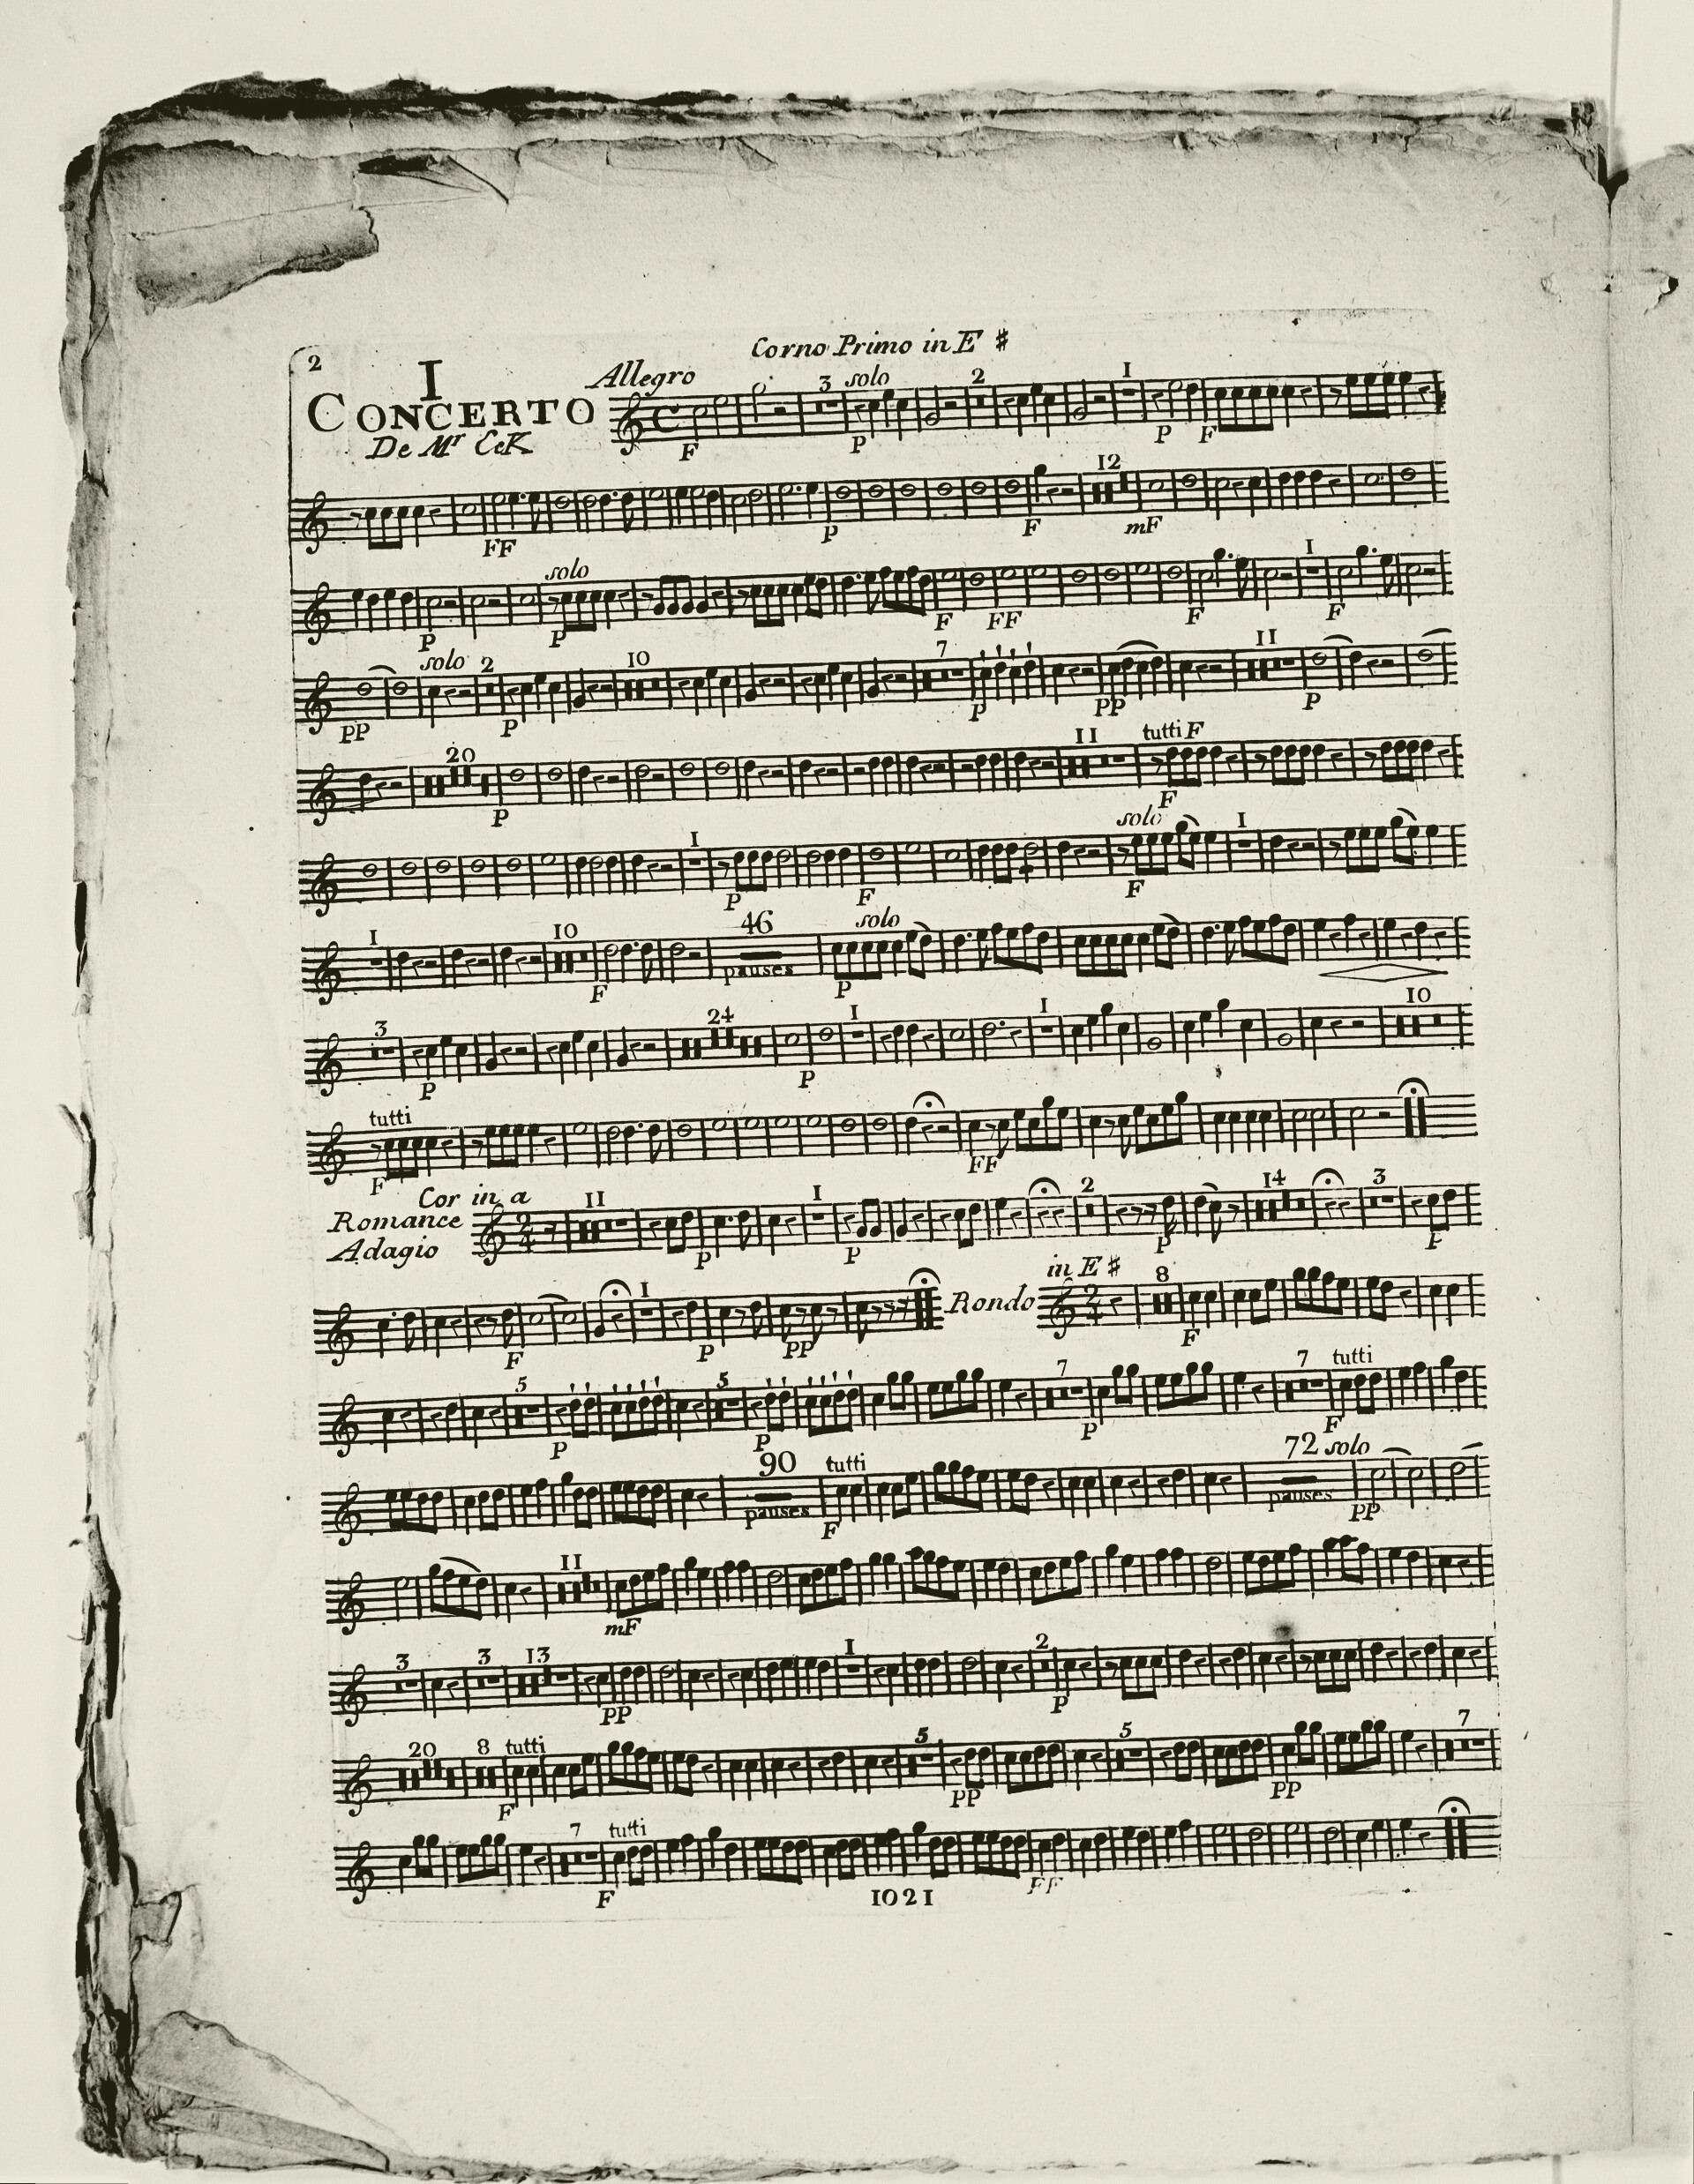 2
Corno Primo in E #
I
Allegro
CONCERTO
De Mr EcK
3 solo 2 I
F P P F
12
FF P F mF
solo I
P P F FF F F
solo 2 10 7 11
PP P P PP P
20 11 tutti F
P F
I solo I
P F F
I 10 46 solo
pauses
F P
3 24 I I 10
P P
tutti
F FF
Cor in a
Romance
Adagio
11 I 2 14 3
P P P P
I in E # 8
Rondo
F P PP F
5 5 7 7 tutti
P P P F
90 tutti 72 solo
pauses pauses
F PP
11
mF
3 3 13 I 2
PP P
20 8 tutti 5 5 7
F PP PP
7 tutti
F FF
1021